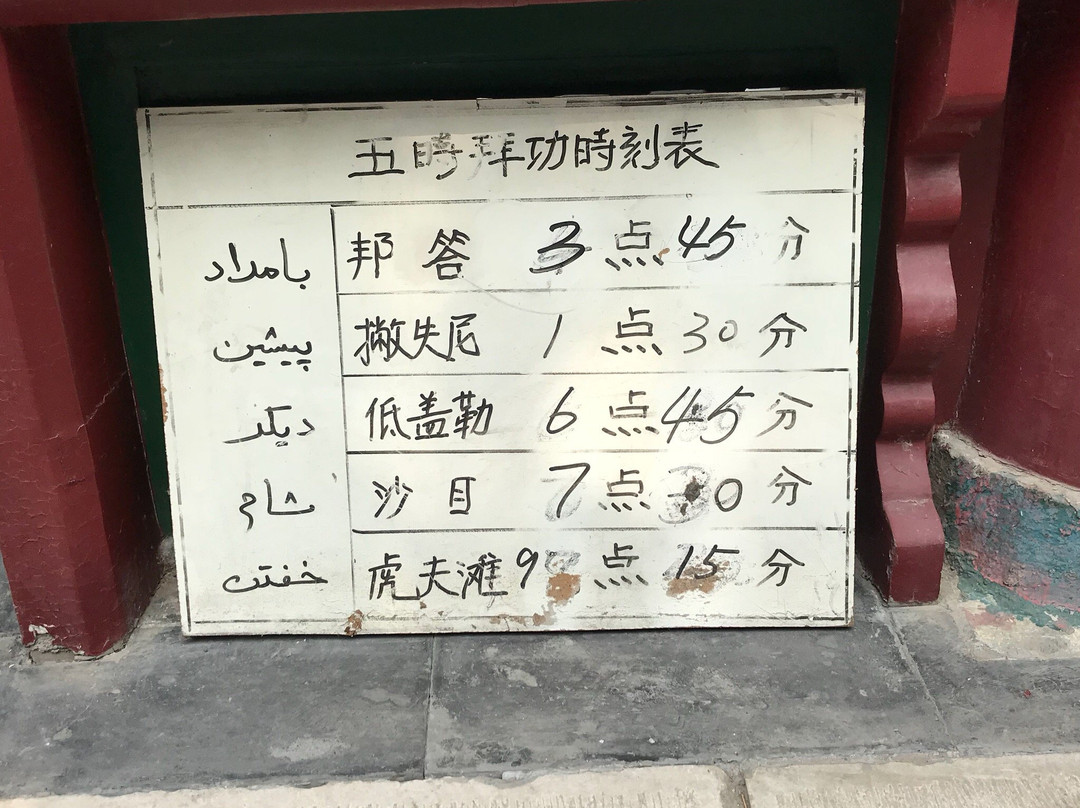 五時拜功時刻表
بامداد 邦答 3点45分
پیشین 撇失尼 1点30分
دیکر 低盖勒 6点45分
شام 沙目 7点 分
خفتن 虎夫滩 9点15分